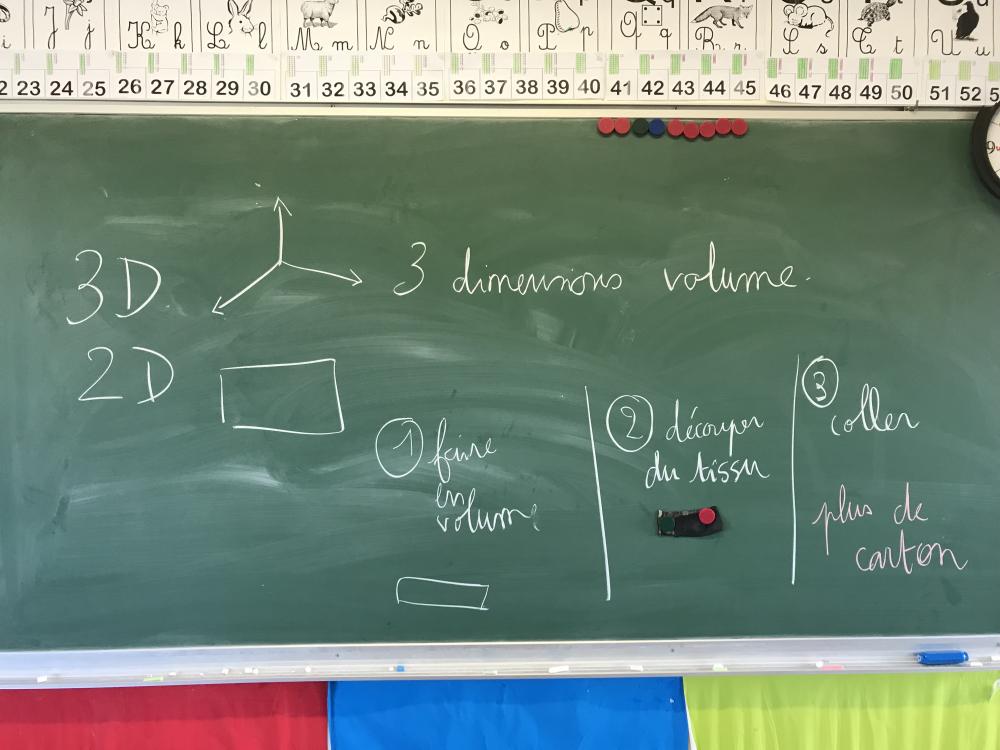 i J j K k L l M m N n O o P p Q q R r S s T t U u
2 23 24 25 26 27 28 29 30 31 32 33 34 35 36 37 38 39 40 41 42 43 44 45 46 47 48 49 50 51 52 5
9
3D 3 dimensions volume.
2D
1 faire
en
volume
2 découper
du tissu
3
coller
plus de
carton